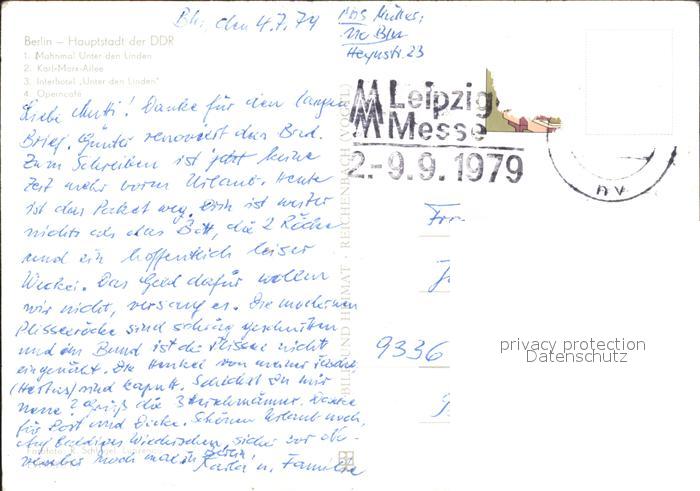 Bln, den 4.7.79
Abs Müller,
110 Bln
Heynstr. 23
Berlin – Hauptstadt der DDR
1. Mahnmal Unter den Linden
2. Karl-Marx-Allee
3. Interhotel „Unter den Linden“
4. Operncafé
Liebe Mutti! Danke für den langen
Brief. Günter renoviert das Bad.
Zum Schreiben ist jetzt keine
Zeit mehr vorm Urlaub. Heute
ist das Paket weg. Drin ist weiter
nichts als das Bett, die 2 Röcke
und ein hoffentlich leiser
Wecker. Das Geld dafür wollen
wir nicht, versaug es. Die modernen
Plisseeröcke sind schräg geschnitten
und im Bund ist die Plissee nicht
eingenäht. Die Henkel von meiner Tasche
sind kaputt. Schickst Du mir
neue? Grüß die 3
für Post und Dicke. Schönen Urlaub noch,
Auf baldiges Wiedersehen, sicher vor No-
vember noch mal in Berlin!
Karla u. Familie
Leipziger
Messe
2.-9.9.1979
BILD UND HEIMAT · REICHENBACH (VOGTL)
9336
privacy protection
Datenschutz